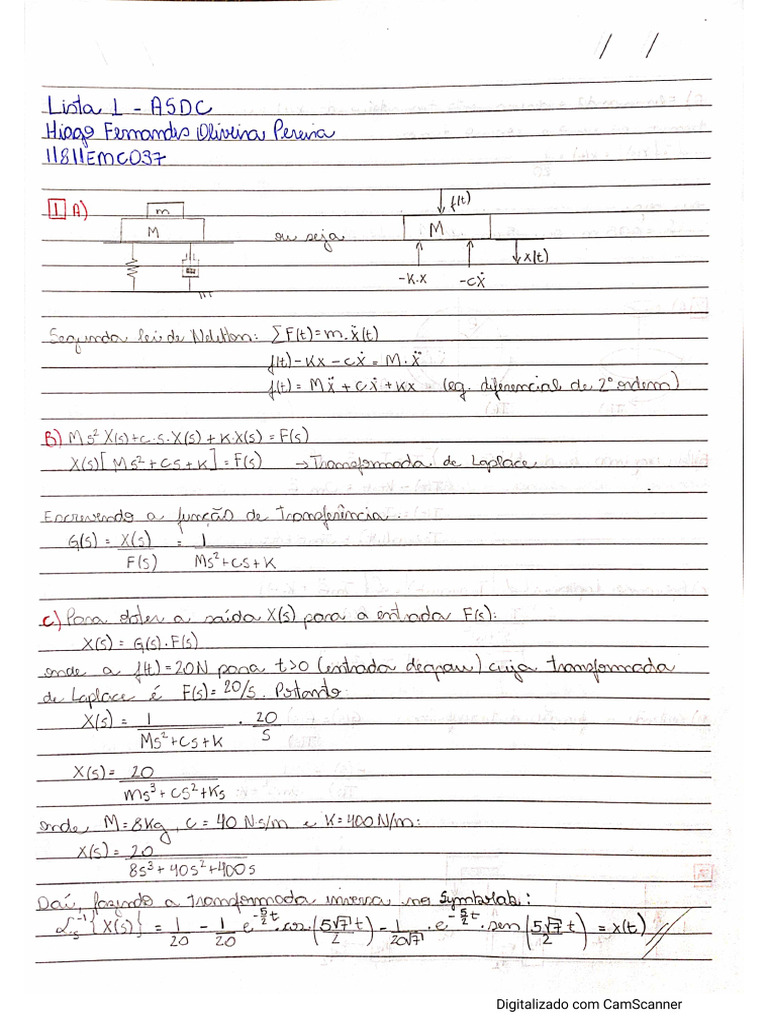 / /
Lista 1 - ASDC
Hiago Fernandes Oliveira Pereira
11811EMC037
1 A)
m
M
ou seja
f(t)
M
x(t)
-K.x
-cẋ
Segunda lei de Newton: ΣF(t)=m.ẍ(t)
f(t)-Kx-cẋ=M.ẍ
f(t)=Mẍ+cẋ+Kx (eq. diferencial de 2º ordem)
B) Ms²X(s)+c.s.X(s)+K.X(s)=F(s)
X(s)[Ms²+Cs+K]=F(s) → Transformada de Laplace
Escrevendo a função de Transferência.
G(s) = X(s)/F(s) = 1/(Ms²+Cs+K)
C) Para obter a saída X(s) para a entrada F(s):
X(s) = G(s).F(s)
onde a f(t)=20N para t>0 (entrada degrau) cuja transformada
de Laplace é F(s)=20/s. Portando
X(s) = 1/(Ms²+Cs+K) . 20/s
X(s) = 20/(ms³+cs²+Ks)
onde M=8Kg, C=40 N.s/m e K=400N/m:
X(s) = 20/(8s³+40s²+400s)
Daí, fazendo a transformada inversa no Symbolab:
ℒₛ⁻¹{X(s)} = 1/20 - 1/20 e^(-5/2 t).cos(5√7/2 t) - 1/(20√7) . e^(-5/2 t) . sen(5√7/2 t) = x(t) //
Digitalizado com CamScanner